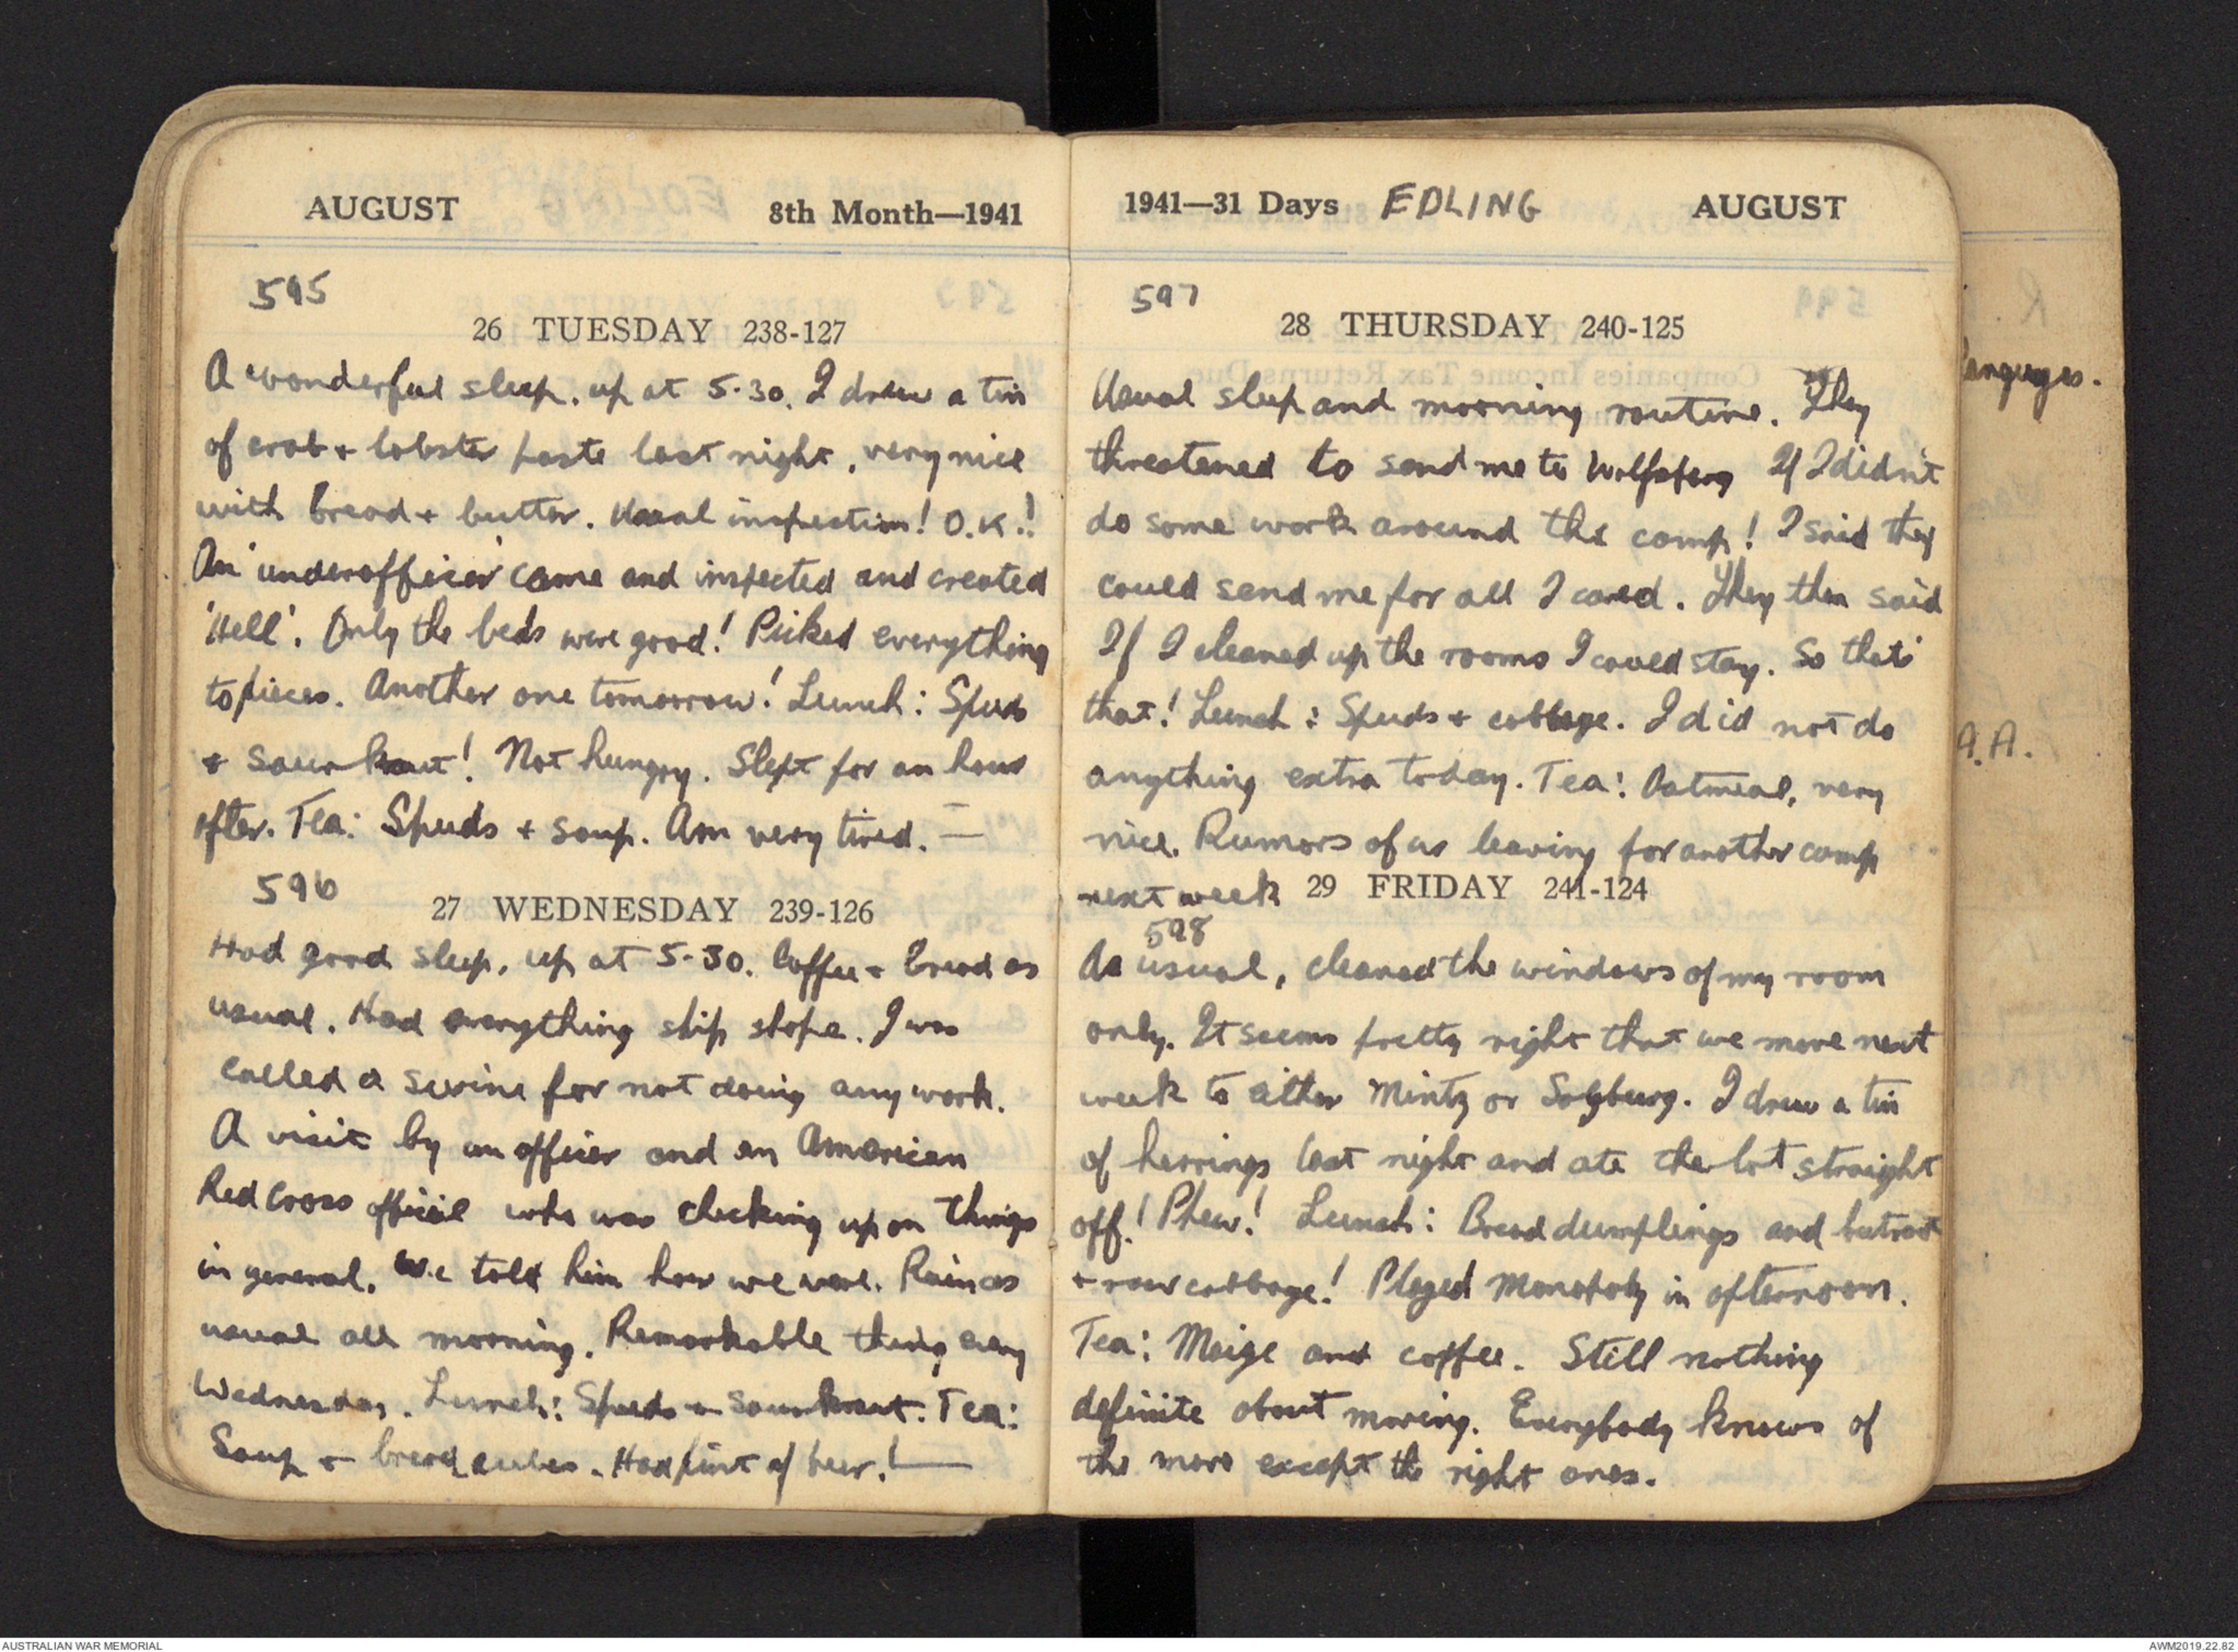 AUGUST 8th Month—1941
595
26 TUESDAY 238-127
A wonderful sleep, up at 5.30. I drew a tin
of crab + lobster paste last night, very nice
with bread + butter. Usual inspection! O.K.!
An 'underofficer' came and inspected and created
'Hell'. Only the beds were good! Picked everything
to pieces. Another one tomorrow! Lunch: Spuds
+ sourkraut! Not hungry. Slept for an hour
after. Tea: Spuds + soup. Am very tired. —
596
27 WEDNESDAY 239-126
Had good sleep, up at 5-30. Coffee + bread as
usual. Had everything ship shape. I was
called a swine for not doing any work.
A visit by an officer and an American
Red Cross official who was checking up on things
in general. We told him how we were. Rain as
usual all morning. Remarkable thing every
Wednesday. Lunch: Spuds + sourkraut. Tea:
Soup + bread cubes. Had pint of beer! —
1941—31 Days EDLING AUGUST
597
28 THURSDAY 240-125
Usual sleep and morning routine. They
threatened to send me to Wolfsberg If I didn't
do some work around the camp! I said they
could send me for all I cared. They then said
If I cleaned up the rooms I could stay. So that's
that! Lunch: Spuds + cabbage. I did not do
anything extra today. Tea: Oatmeal, very
nice. Rumors of us leaving for another camp
next week
29 FRIDAY 241-124
598
As usual, cleaned the windows of my room
only. It seems pretty right that we move next
week to either Mintz or Salzburg. I drew a tin
of herrings last night and ate the lot straight
off! Phew! Lunch: Bread dumplings and beetroot
+ raw cabbage! Played Monopoly in afternoon.
Tea: Maize and coffee. Still nothing
definite about moving. Everybody knows of
the move except the right ones.
R
languages.
A.A.
AUSTRALIAN WAR MEMORIAL
AWM2019.22.82